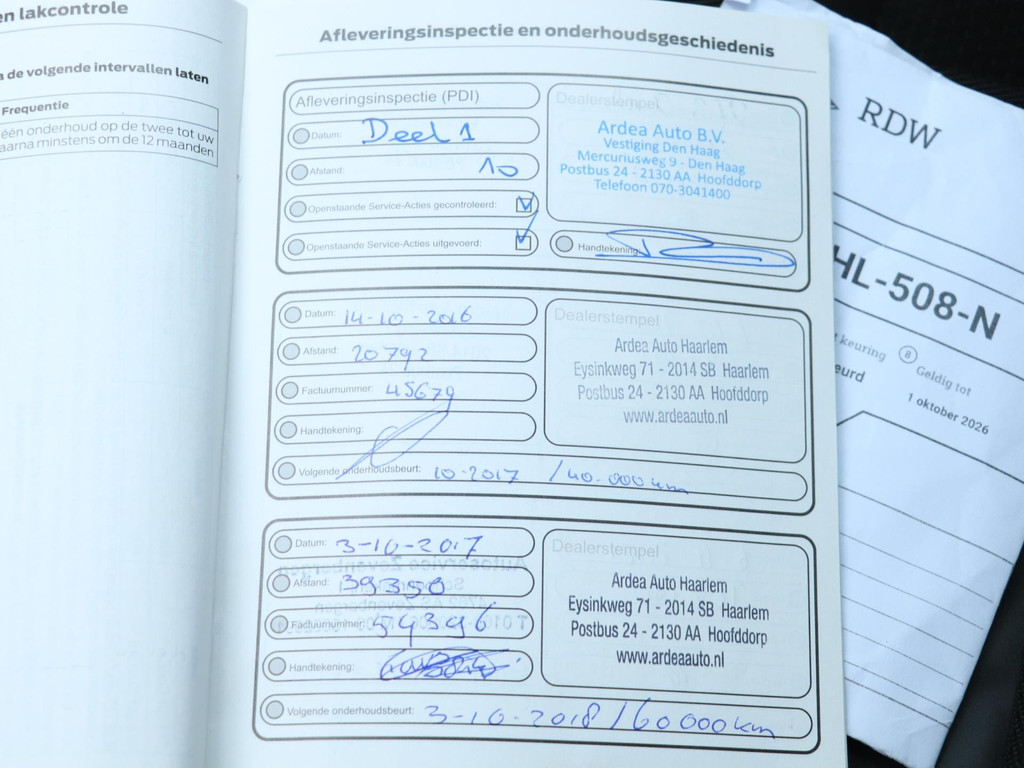 en lakcontrole
a de volgende intervallen laten
Frequentie
één onderhoud op de twee tot uw
aarna minstens om de 12 maanden
Afleveringsinspectie en onderhoudsgeschiedenis
Afleveringsinspectie (PDI)
Datum: Deel 1
Afstand: 10
Openstaande Service-Acties gecontroleerd:
Openstaande Service-Acties uitgevoerd:
Dealerstempel
Ardea Auto B.V.
Vestiging Den Haag
Mercuriusweg 9 - Den Haag
Postbus 24 - 2130 AA Hoofddorp
Telefoon 070-3041400
Handtekening:
Datum: 14-10-2016
Afstand: 20792
Factuurnummer: 45679
Handtekening:
Volgende onderhoudsbeurt: 10-2017 / 40.000 km
Dealerstempel
Ardea Auto Haarlem
Eysinkweg 71 - 2014 SB Haarlem
Postbus 24 - 2130 AA Hoofddorp
www.ardeaauto.nl
Datum: 3-10-2017
Afstand: 39350
Factuurnummer: 54396
Handtekening:
Volgende onderhoudsbeurt: 3-10-2018 / 60000 km
Dealerstempel
Ardea Auto Haarlem
Eysinkweg 71 - 2014 SB Haarlem
Postbus 24 - 2130 AA Hoofddorp
www.ardeaauto.nl
RDW
HL-508-N
keuring
eurd
8
Geldig tot
1 oktober 2026